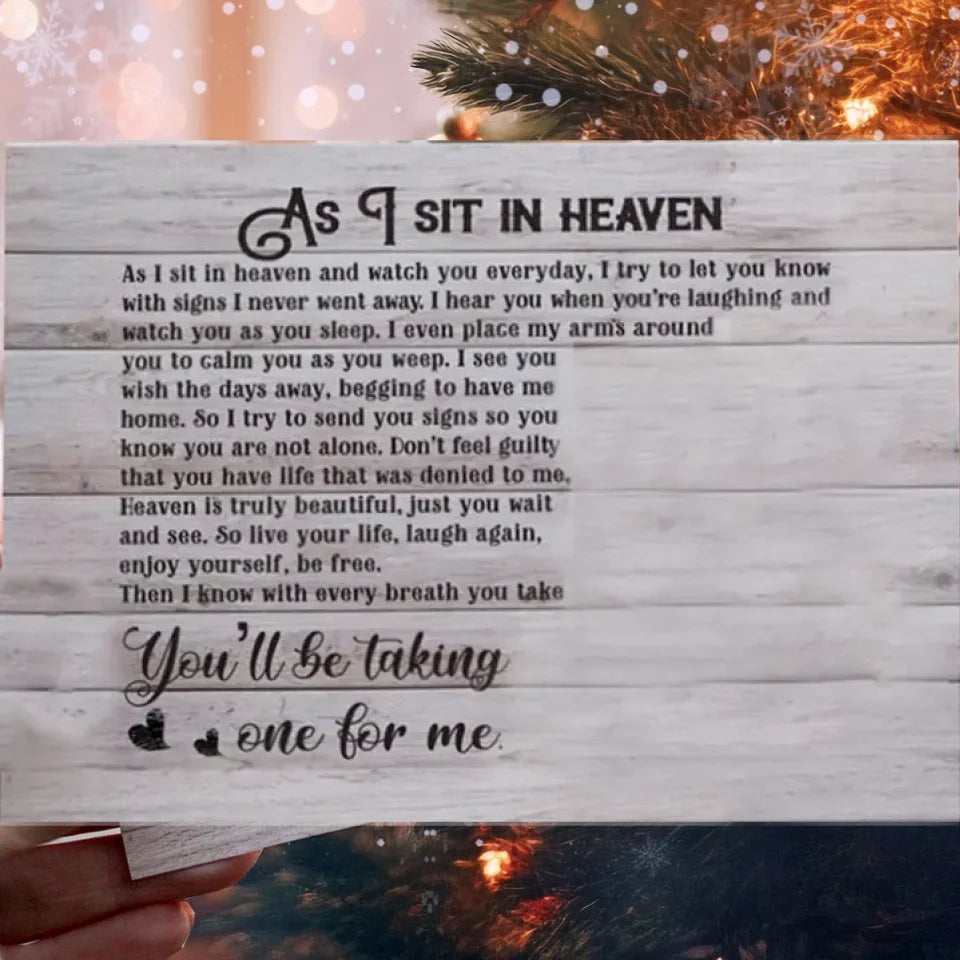 As I sit in heaven
As I sit in heaven and watch you everyday, I try to let you know
with signs I never went away. I hear you when you're laughing and
watch you as you sleep. I even place my arms around
you to calm you as you weep. I see you
wish the days away, begging to have me
home. So I try to send you signs so you
know you are not alone. Don't feel guilty
that you have life that was denied to me.
Heaven is truly beautiful, just you wait
and see. So live your life, laugh again,
enjoy yourself, be free.
Then I know with every breath you take
You'll be taking
one for me.